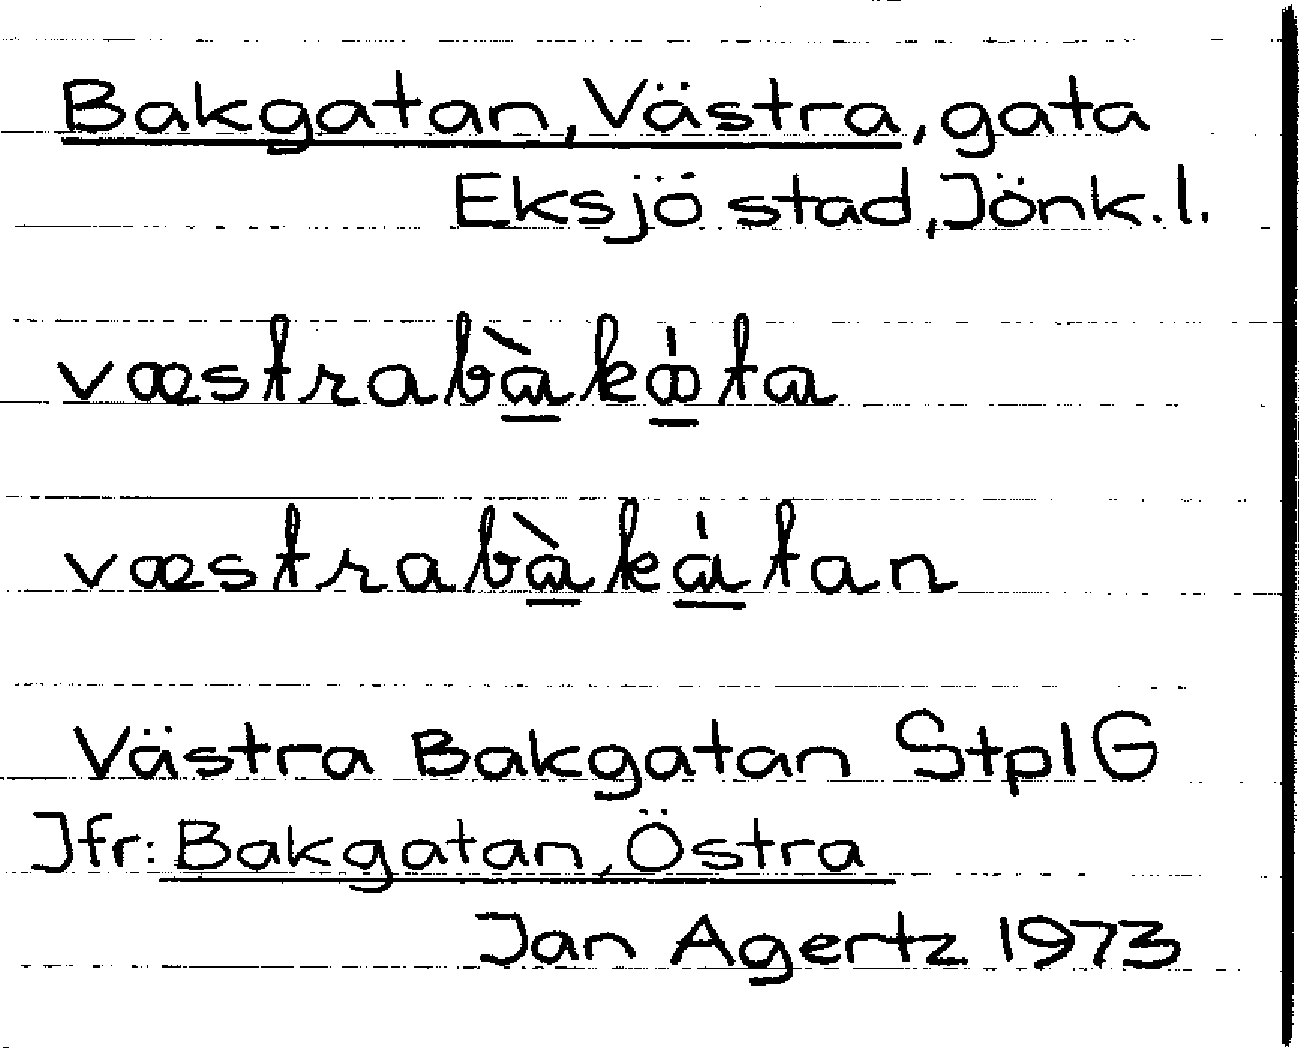 Bakgatan, Västra, gata
Eksjö stad, Jönk. l.
væstrabàkáta
væstrabàkátan
Västra Bakgatan StplG
Jfr: Bakgatan, Östra
Jan Agertz 1973